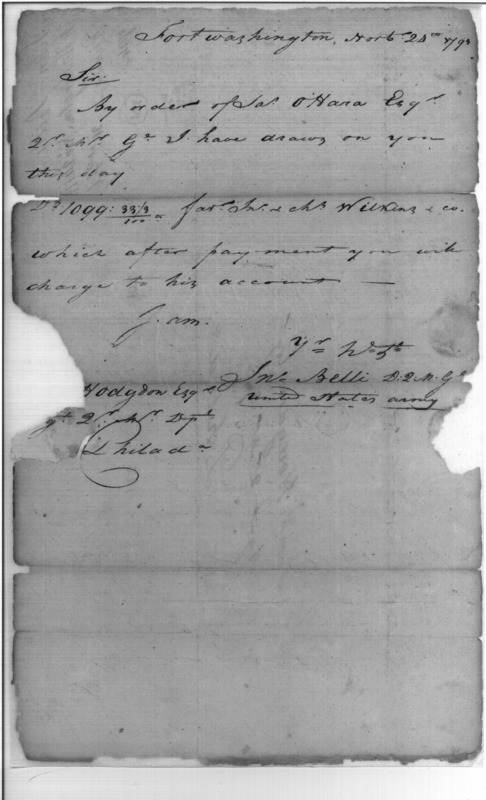 Fortwashington, Novbr 24th 1793
Sir.
By order of Jas. O'Hara Esqr.
Qr. Mr. Gl. I have drawn on you
this day
Ds. 1099: 33 1/3/100 favr. Jno. & Chs. Wilkins & co.
which after payment you will
charge to his account —
I am.
Yr
Jno. Belli D.Q.M.Gl
united States army
Hodgdon Esqr
Qr. Mr. Dpt
Philada